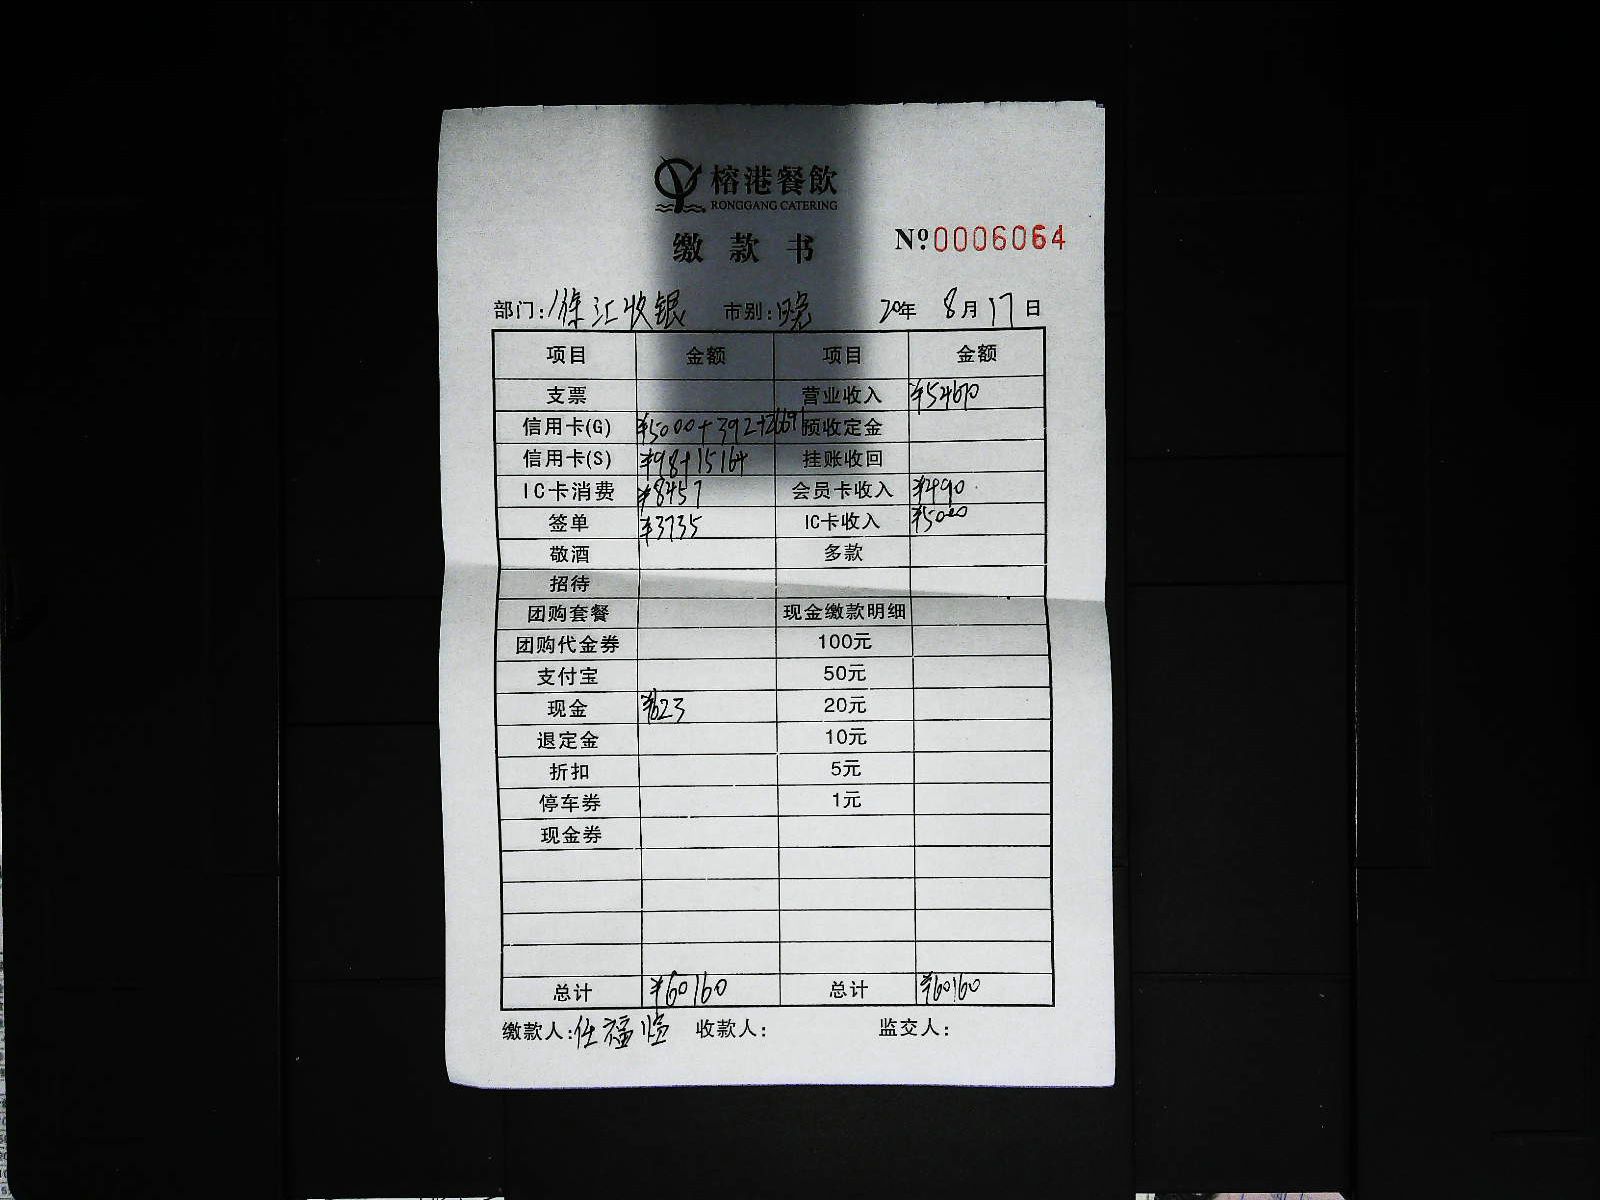 榕港餐飲
RONGGANG CATERING
缴款书 №:0006064
部门:徐汇收银 市别:晚 20年 8月17日
项目 金额 项目 金额
支票 营业收入 ¥54670
信用卡(G) ¥5000+392+26691 预收定金
信用卡(S) ¥98+15164 挂账收回
IC卡消费 ¥8457 会员卡收入 ¥490
签单 ¥3735 IC卡收入 ¥5000
敬酒 多款
招待
团购套餐 现金缴款明细
团购代金券 100元
支付宝 50元
现金 ¥623 20元
退定金 10元
折扣 5元
停车券 1元
现金券
总计 ¥60160 总计 ¥60160
缴款人:任福临 收款人: 监交人: